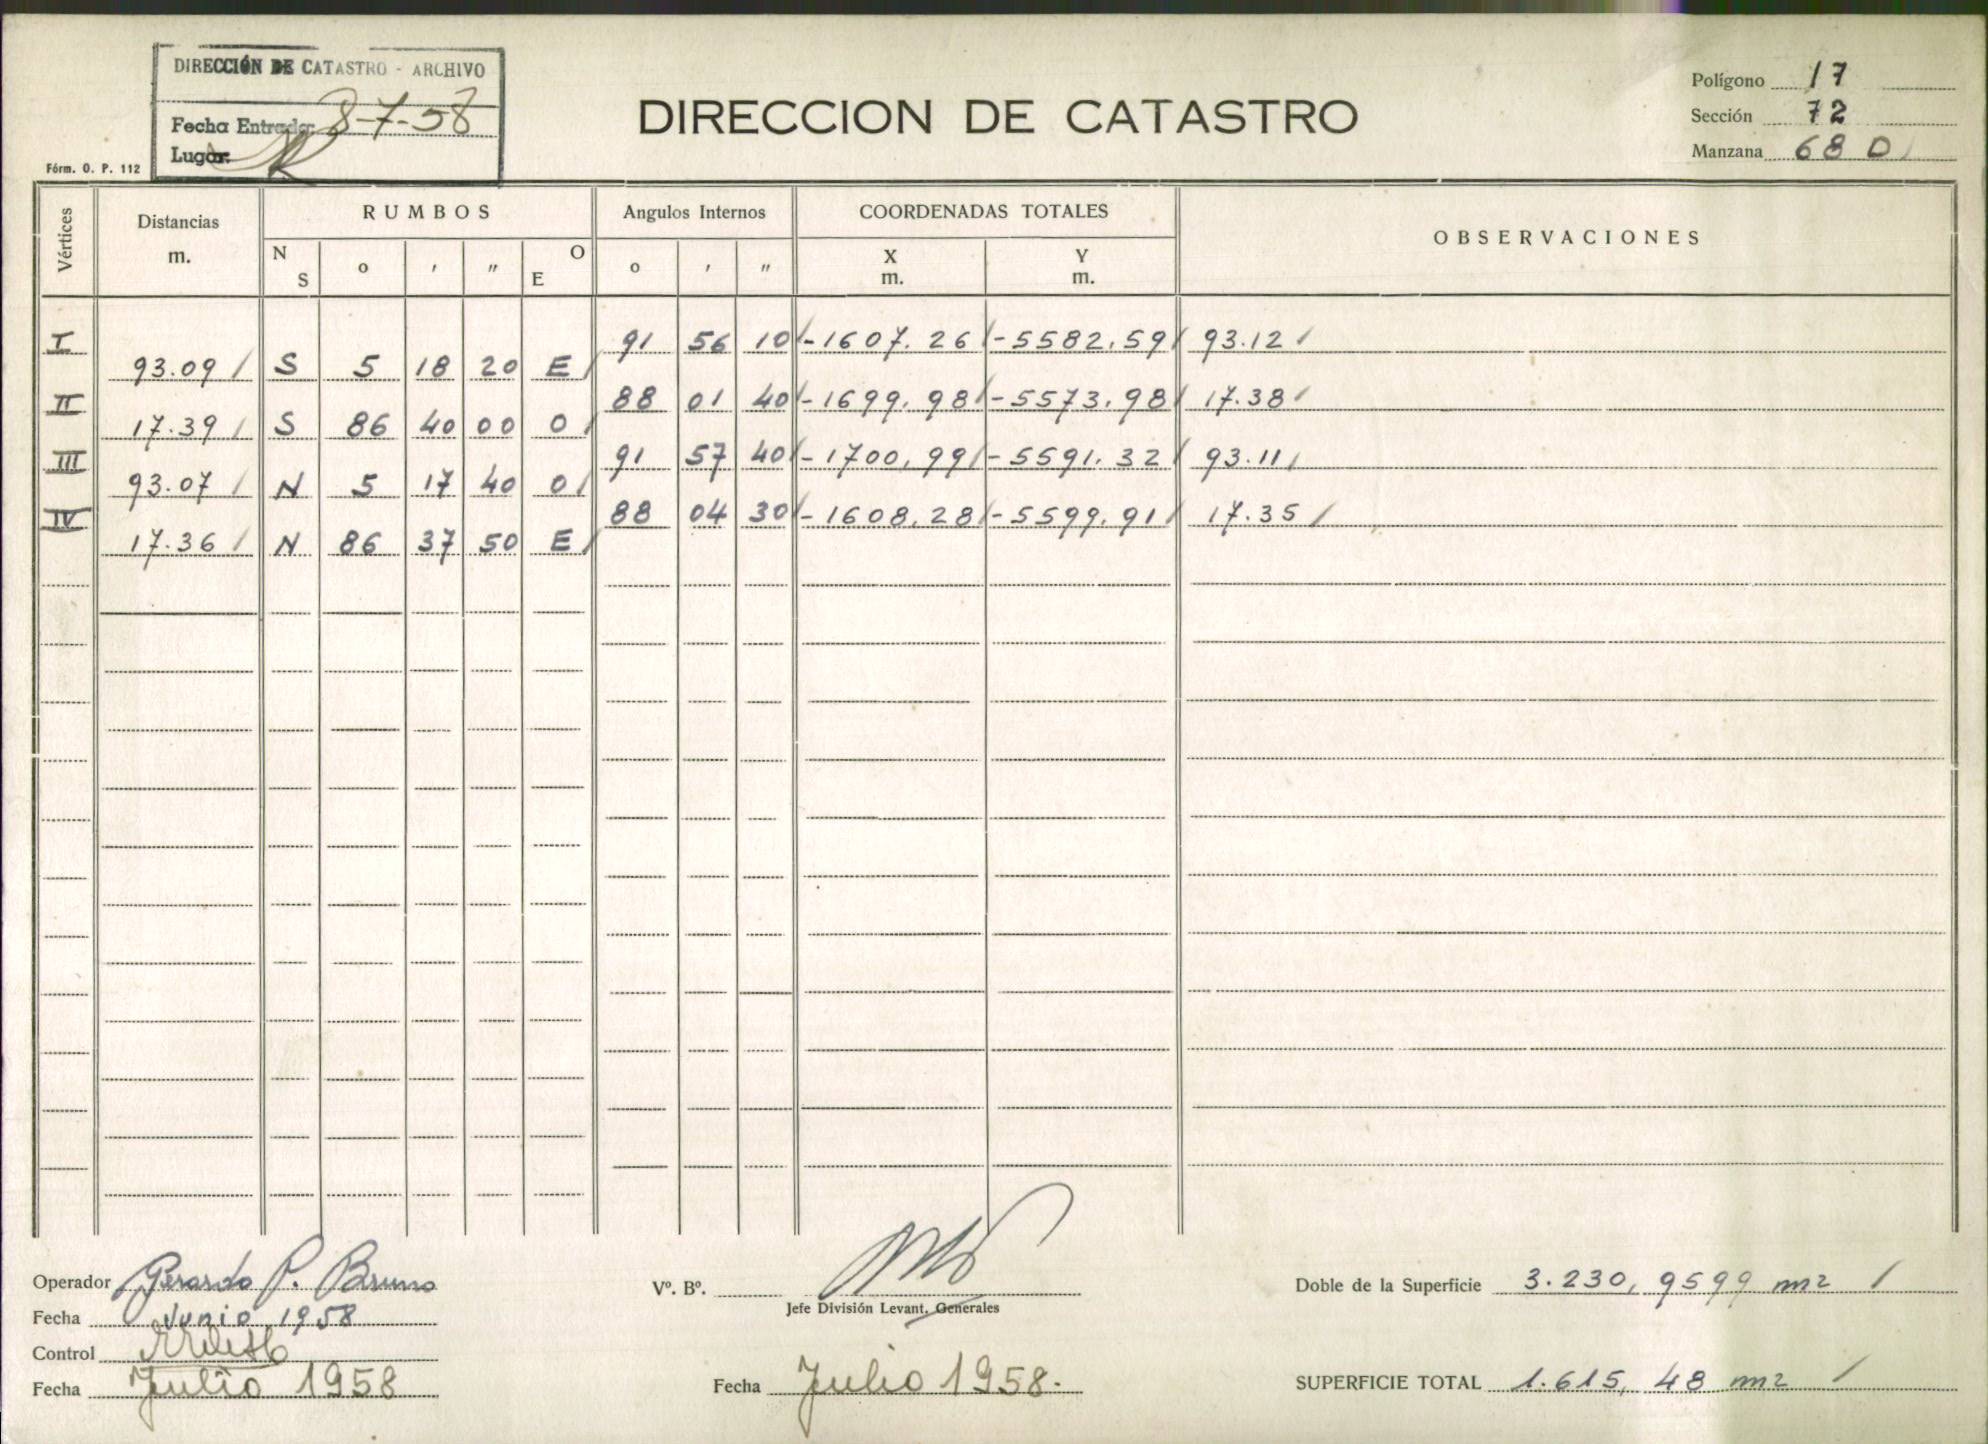 DIRECCIÓN DE CATASTRO - ARCHIVO
Fecha Entrada: 8-7-58
Lugar:
Fórm. O. P. 112
DIRECCION DE CATASTRO
Polígono 17
Sección 72
Manzana 68 D
Vértices Distancias m. RUMBOS Angulos Internos COORDENADAS TOTALES OBSERVACIONES
N S o ' " O E o ' " X m. Y m.
I 91 56 10 -1607.26 -5582.59 93.12
93.09 S 5 18 20 E
II 88 01 40 -1699.98 -5573.98 17.38
17.39 S 86 40 00 O
III 91 57 40 -1700.99 -5591.32 93.11
93.07 N 5 17 40 O
IV 88 04 30 -1608.28 -5599.91 17.35
17.36 N 86 37 50 E
Operador Gerardo P. Bruno
Fecha Junio 1958
Control
Fecha Julio 1958
Vº. Bº.
Jefe División Levant. Generales
Fecha Julio 1958.
Doble de la Superficie 3.230,9599 m2
SUPERFICIE TOTAL 1.615,48 m2